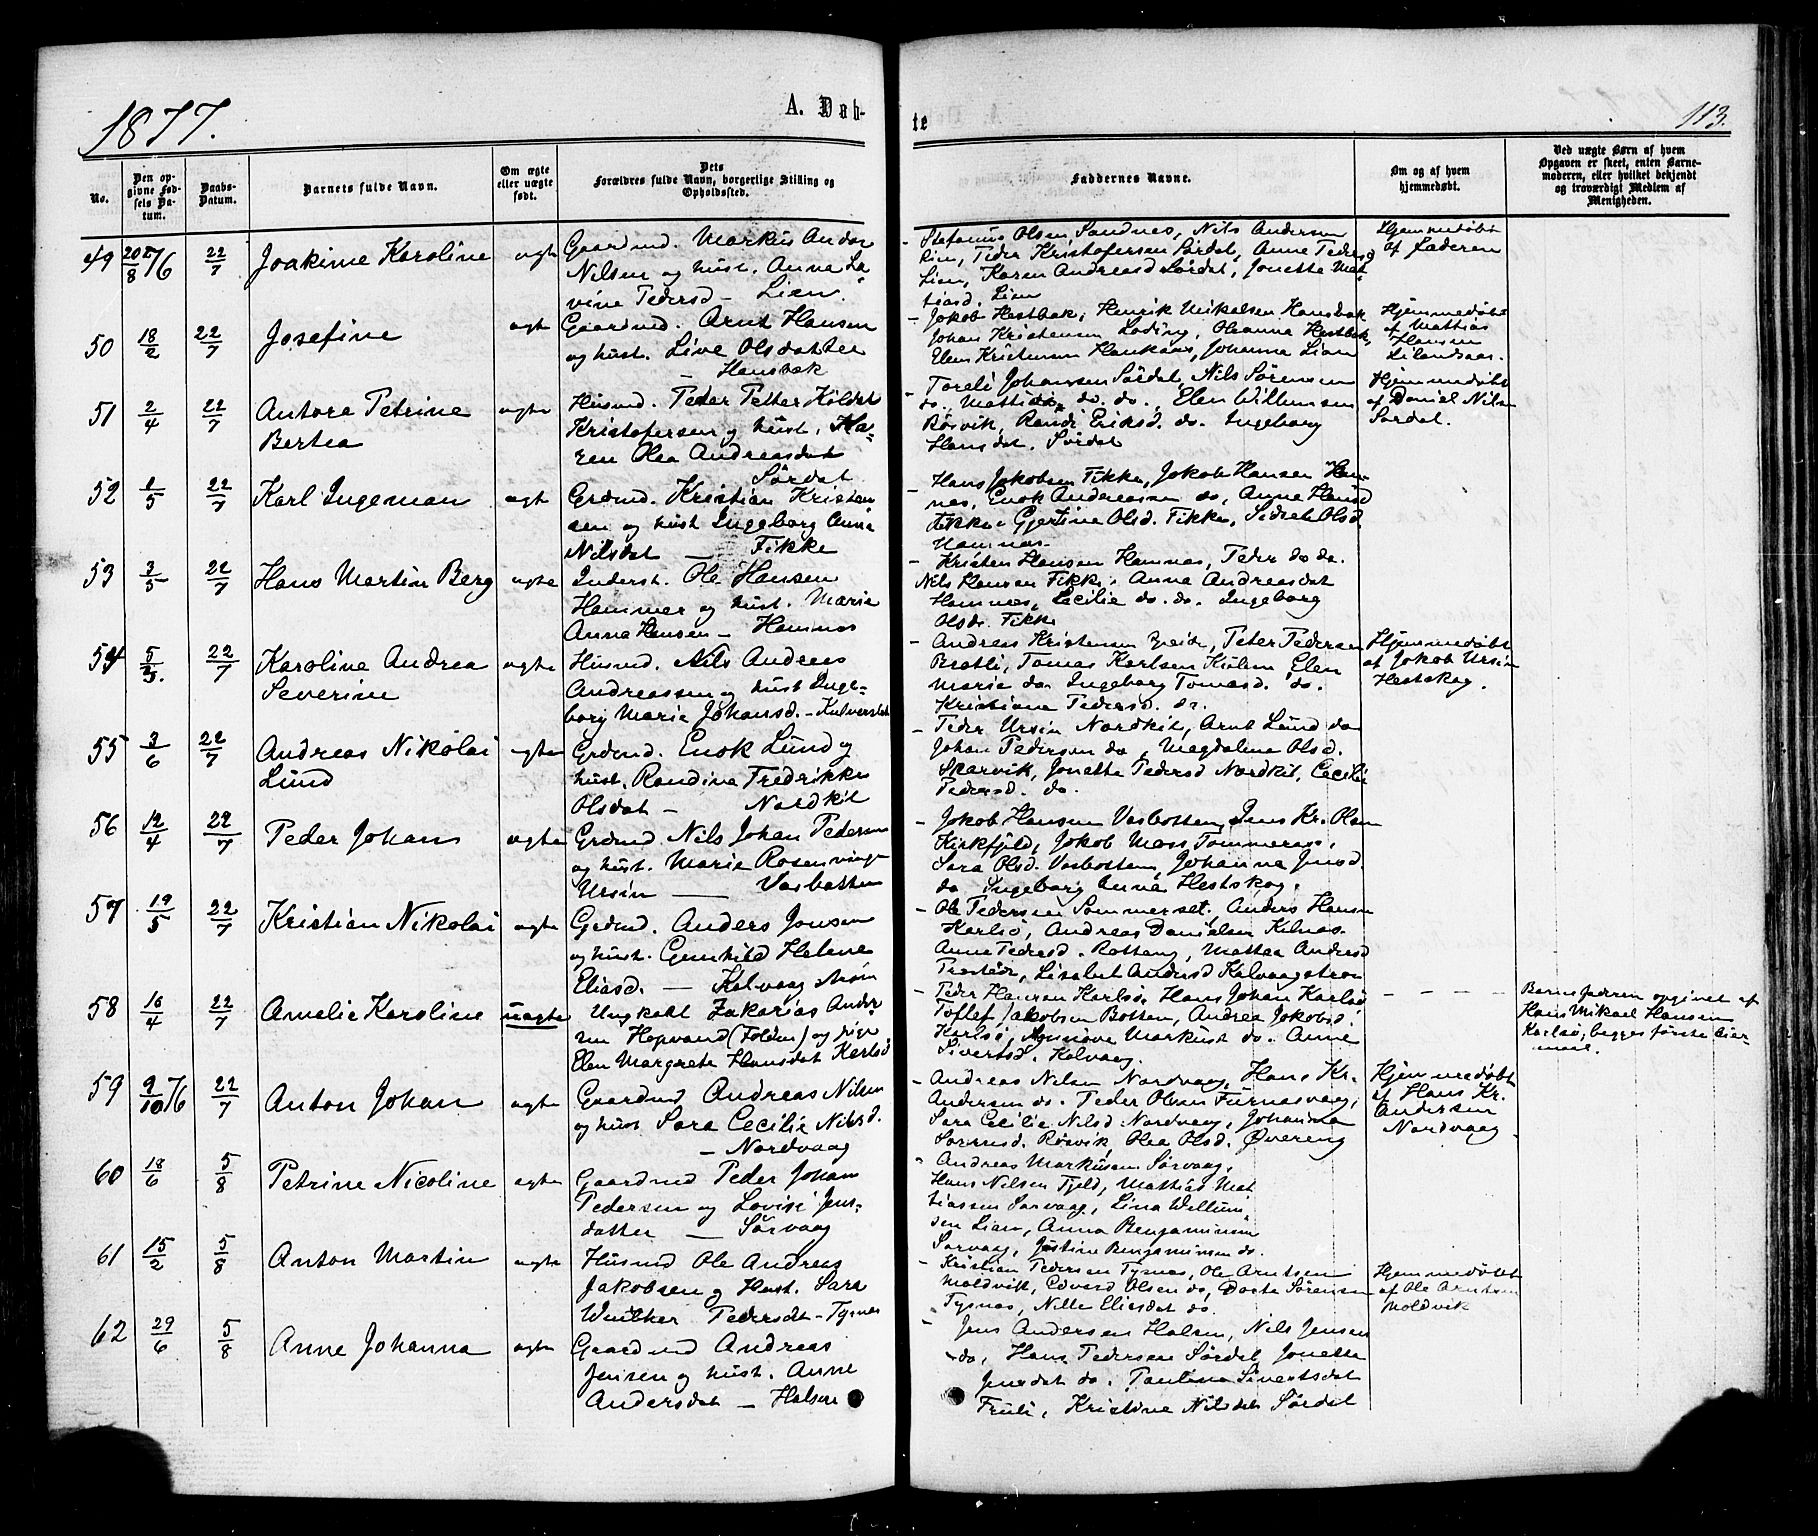 1877.
A. Døb-
te
113.
No.
Den op-
givne Fød-
sels Da-
tum.
Daabs-
Datum.
Barnets fulde Navn.
Om ægte
eller uægte
født.
Dets
Forældres fulde Navn, borgerlige Stilling og
Opholdssted.
Faddernes Navne.
Om og af hvem
hjemmedøbt.
Ved uægte Børn af hvem
Opgaven er skeet, enten Barne-
moderen, eller hvilket bekjendt
og troværdigt Medlem af
Menigheden.
49 20/8 76 22/7 Joakime Karoline ægte Gaardmd. Markus Andor
Nilsen og hust. Anna La-
vine Pedersd - Lien.
- Stefanus Olsen Sandnes, Nils Andersen
Lien, Peder Kristofersen Sørdal, Anne Pedersd
Lien, Karen Andreasd Sørdal, Jonette Mat-
tiasd. Lien
Hjemmedøbt
af Faderen
50 18/2 22/7 Josefine ægte Gaardmd. Arnt Hansen
og hust. Live Olsdatter
- Hansbak
- Jakob Hestbak, Henrik Mikalsen Hansbak
Johan Kristensen Løding, Oleanna Hestbak,
Elen Kristensen, Johanna Lien
Hjemmedøbt
af Mattias
Hansen
51 2/4 22/7 Antora Petrine
Bertea ægte Husmd. Peder Petter Holder
Kristofersen og hust. Ka-
ren Olea Andreasdat
Sørdal
- Toreli Johansen Sørdal, Nils Sørensen
do, Mattis do. do., Elen Willumsen
Røsvik, Randi Eriksd. do. Ingeborg
Hansdat. Sørdal
Hjemmedøbt
af Daniel Nils
Sørdal.
52 1/5 22/7 Karl Ingeman ægte Grdmd. Kristian Kristen
sen og hust Ingeborg Anna
Nilsdat - Fikke
- Hans Jakobsen Fikke, Jakob Hansen Ham-
nes, Enok Andreassen do, Anne Hansd
Fikke, Gjertine Olsd. Fikke, Sidsel Olsd
Hamnes.
53 3/5 22/7 Hans Martin Berg ægte Inderst. Ole Hansen
Hammer og hust. Marie
Anna Hansen - Hamnes
- Kristen Hansen Hamnes, Peder do do.
Nils Hansen Fikke, Anna Andreasdat
Hamnes, Cecilie do. do. Ingeborg
Olsd. Fikke
54 5/3. 22/7 Karoline Andrea
Severine ægte Husmd. Nils Andreas
Andreassen og hust Inge-
borg Marie Johansd. - Kulverstad
- Andreas Kristensen Zeide, Peter Pedersen
Bratli, Tomas Karlsen Kulem Elen
Marie do Ingeborg Tomasd. do.
Kristiane Pedersd. do.
Hjemmedøbt
af Jakob Ursin
Hestskog.
55 3/6 22/7 Andreas Nikolai
Lund ægte Grdmd. Enok Lund og
hust. Randina Fredrikke
Olsdat - Nordkil
- Peder Ursin Nordkil, Arnt Lund do
Johan Pedersen do, Magdalena Olsd.
Skarvik, Jonetta Pedersd Nordkil, Cecilie
Pedersd. do.
56 12/4 22/7 Peder Johan ægte Grdmd Nils Johan Pedersen
og hust. Marie Rosenvinge
Ursin - Vasbotten
- Jakob Hansen Vasbotten, Jens Kr. Olsen
Kirkfjeld, Jakob Moss Tømmeraas,
Sara Olsd. Vasbotten, Johanna Jensd.
do Ingeborg Anna Hestskog.
57 19/5 22/7 Kristian Nikolai ægte Grdmd. Anders Jonsen
og hust. Gunhild Helene
Eliasd. - Kalvaag
- Ole Pedersen Sommerset, Anders Hansen
Karlsø, Andreas Danielsen Kilnes.
Anne Pedersd. Rottang, Mattea Andersd
Lisabet Andersd Kalvaagstran
58 16/4 22/7 Amelie Karoline uægte Ungkarl Zakarias Ander
sen Hopvand (Folden) og pige
Elen Margrete Hansdat Karlsø
- Peder Hansen Karlsø, Hans Johan Karlsø
Toflef Jakobsen Botten, Andrea Jakobsd
Karlsø, Agnnove Markust do. Anne
Sivertsd. Kalvaag.
- - - -
Barnefaderen opgivet af
Hans Mikael Hansen
Karlsø, begges første Leier-
maal.
59 9/10 76 22/7 Anton Johan ægte Gaardmd Andreas Nilsen
og hust Sara Cecilie Nilsd.
- Nordvaag
- Andreas Nilsen Nordvaag, Hans Kr.
Andersen do. Peder Olsen Furnesvaag,
Sara Cecilie Nilsd Nordvaag, Johanna
Sørensd. Røsvik, Olea Olsd. Øvereng
Hjemmedøbt
af Hans Kr.
Andersen
Nordvaag
60 18/6 5/8 Petrine Nicoline ægte Gaardmd Peder Johan
Pedersen og Lovise Jens-
datter - Sørvaag
- Andreas Markusen Sørvaag,
Hans Nilsen Fjeld, Mattias Mat
tiassen Sørvaag, Lina Willum-
sen Lien, Anna Benjaminsen
Sørvaag, Justine Benjaminsen do.
61 15/2 5/8 Anton Martin ægte Husmd Ole Andreas
Jakobsen og Hust. Sara
Pedersdt - Tysnes
- Kristian Pedersen Tysnes, Ole Arntsen
Moldvik, Edvard Olsen do, Dorte Sørensen
Tysnes, Nille Eliesdat do.
Hjemmedøbt
af Ole Arntsen
Moldvik
62 29/6 5/8 Anne Johanna ægte Gaardmd Andreas
Jensen og hust. Anne
Andersdat - Halsen
- Jens Andersen Halsen, Nils Jensen
do, Hans Pedersen Sørdal Jonetta
Jensdat do. Paulina Sivertsdat
Fruli, Kristine Nilsdat Sørdal